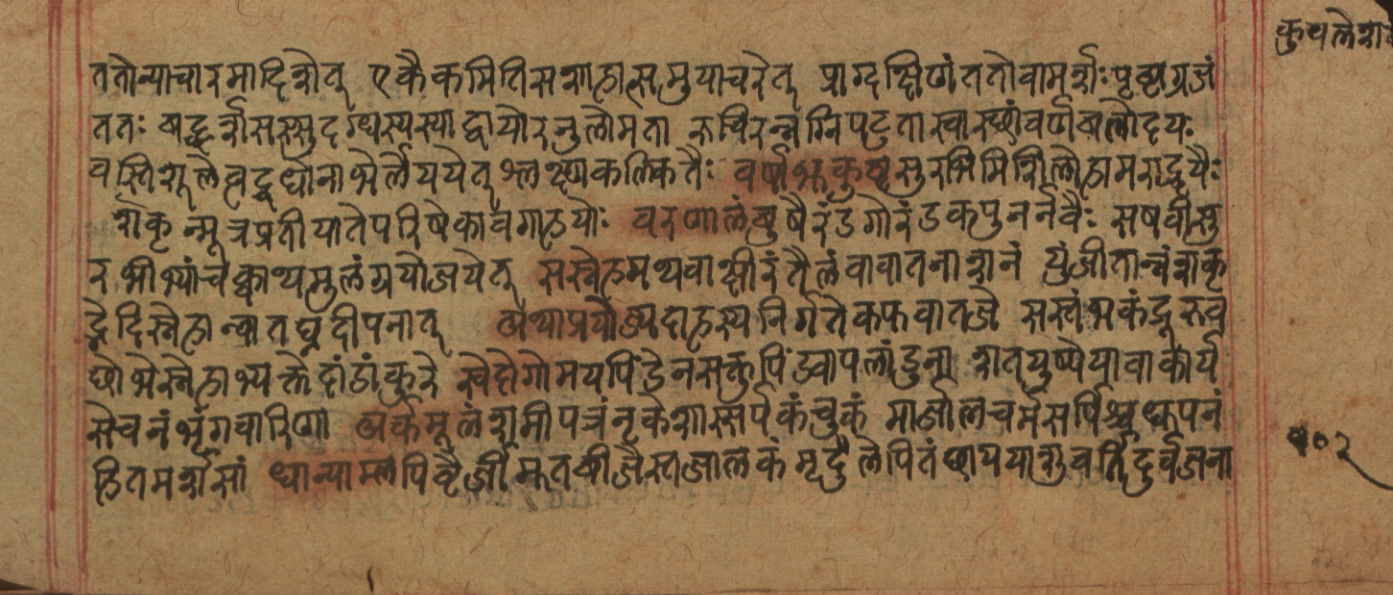 कुचलेशा
ततोन्याचारमादिशेत् एकैकमितिसप्ताहात्समुपाचरेत् प्राग्दक्षिणंततोवाममर्शः पृष्ठाग्रजं
ततः बह्वर्शसस्सुदग्धस्यस्याद्वायोरनुलोमता रुचिरन्नेग्निपटुतास्वास्थ्यंवर्णबलोदयः
वस्तिशूलेत्वद्वर्धोनाभेर्लेपयेत् श्लक्ष्णकल्कितैः वर्षाभूकुष्ठसुरभिमिशिलोहामराह्वयैः
शकृन्मूत्रप्रतीघातेपरिषेकावगाहयोः वरणालंबुषैरंडगोरंडकपुनर्नवैः सषवीसु
रभीभ्यांचक्वाथमुलंप्रयोजयेत् सस्नेहमथवाक्षीरंतैलंवावातनाशनं युंजीतान्नंशकृ
द्भेदिस्नेहान्वातघ्नदीपनात् अथाप्रयोज्यदाहस्यनिर्गतेकफवातजे सस्तंभकंडूरुक्
छोभेस्नेहाभ्यक्तेदांठांकुरे स्वेदोगोमयपिंडेनसक्तुपिंड्वापलांडुना शतपुष्पेयावाकार्य
सेचनंभृंगवारिणा अर्कमूलंशमीपत्रंनृकेशास्सर्पकंचुकं मार्जालचर्मसर्पिश्चधूपनं
हितमर्शसां धान्याम्लपिष्टैर्जीमूतबीजैस्तज्जालकंमृदुलेपितंछाययाशुवर्तिर्दुर्वजना
१०२